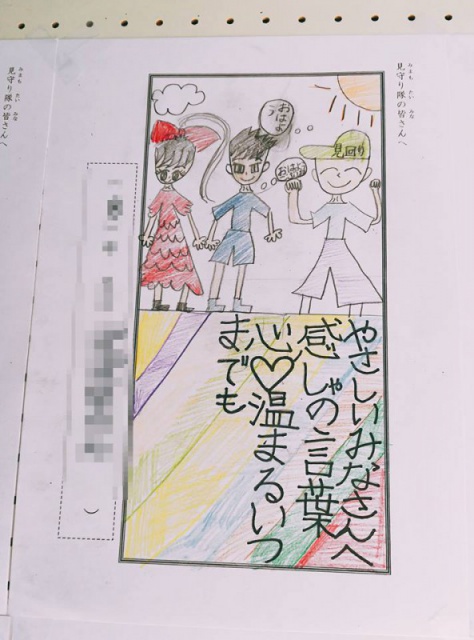 見守り隊の皆さんへ
おはよ
う
見回り
やさしいみなさんへ
感しゃの言葉
心♡温まるいつ
までも
見守り隊の皆さんへ